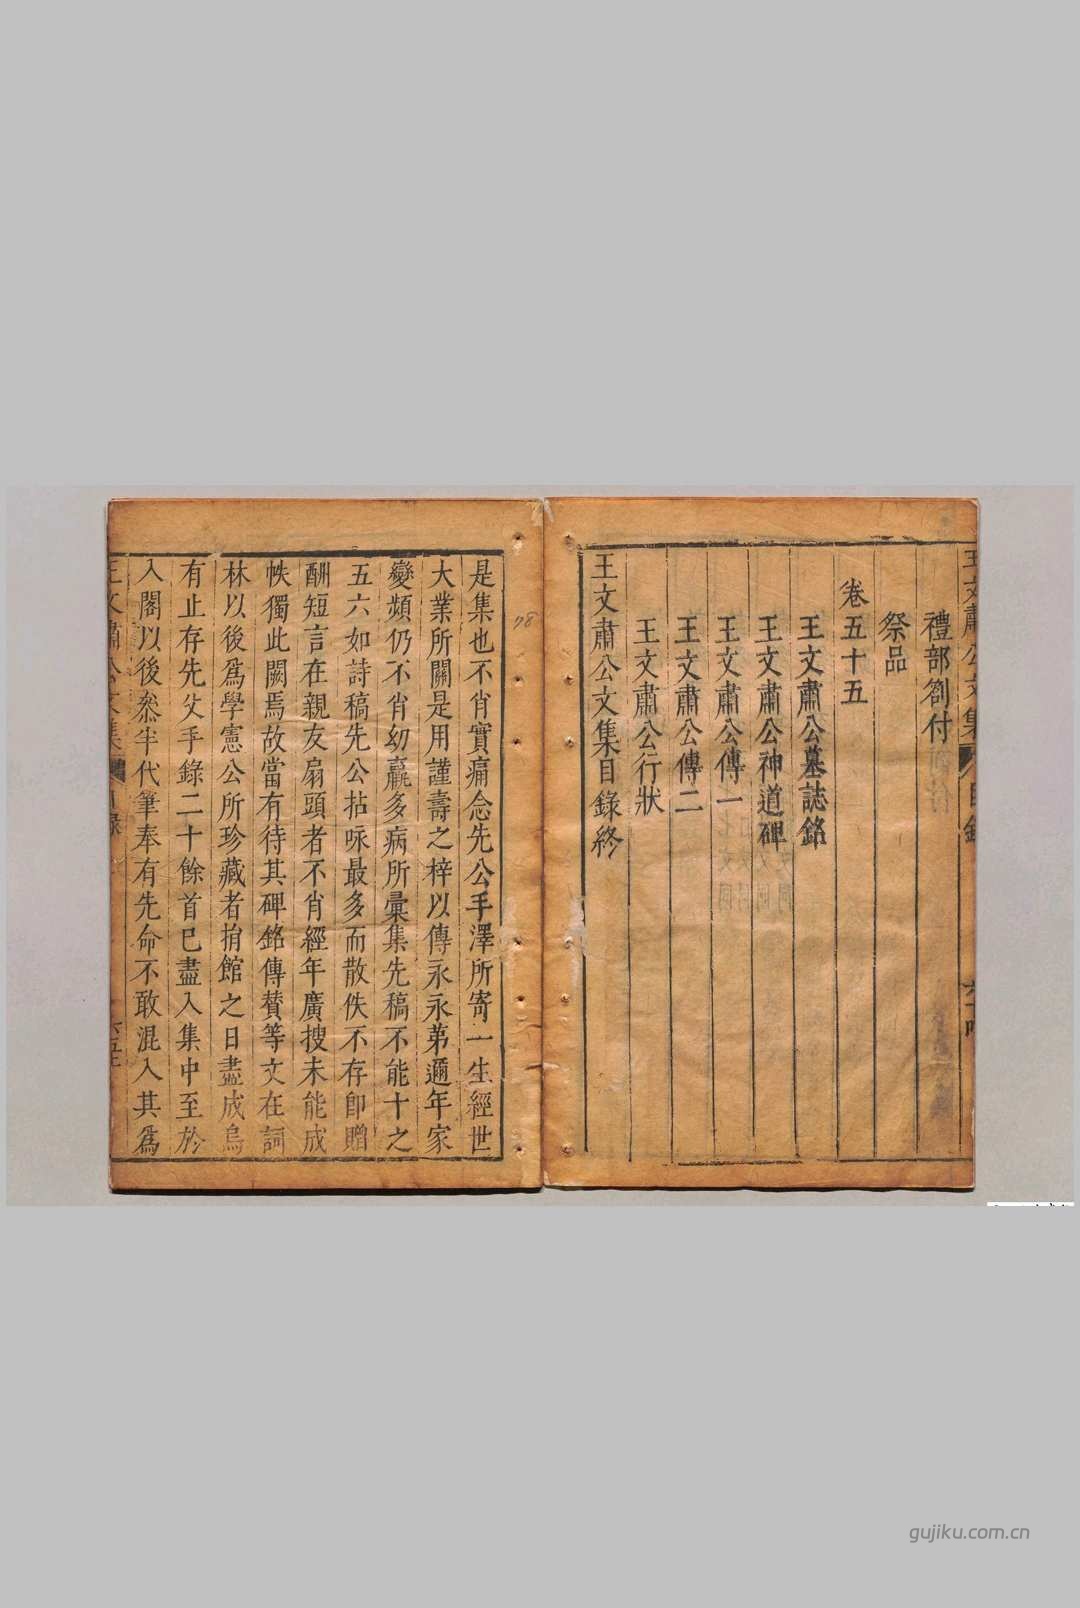 禮部劄付
祭品
卷五十五
王文肅公墓誌銘
王文肅公神道碑
王文肅公傳一
王文肅公傳二
王文肅公行狀
王文肅公文集目錄終
是集也不肖實痛念先公手澤所寄一生經世
大業所關是用謹壽之梓以傳永永弟邇年家
變頻仍不肖幼羸多病所彙集先稿不能十之
五六如詩稿先公拈咏最多而散佚不存即贈
酬短言在親友扇頭者不肖經年廣搜未能成
帙獨此闕焉故當有待其碑銘傳賛等文在詞
林以後爲學憲公所珍藏者捐館之日盡成烏
有止存先父手錄二十餘首已盡入集中至於
入閣以後叅半代筆奉有先命不敢混入其爲
王文肅公文集
gujiku.com.cn